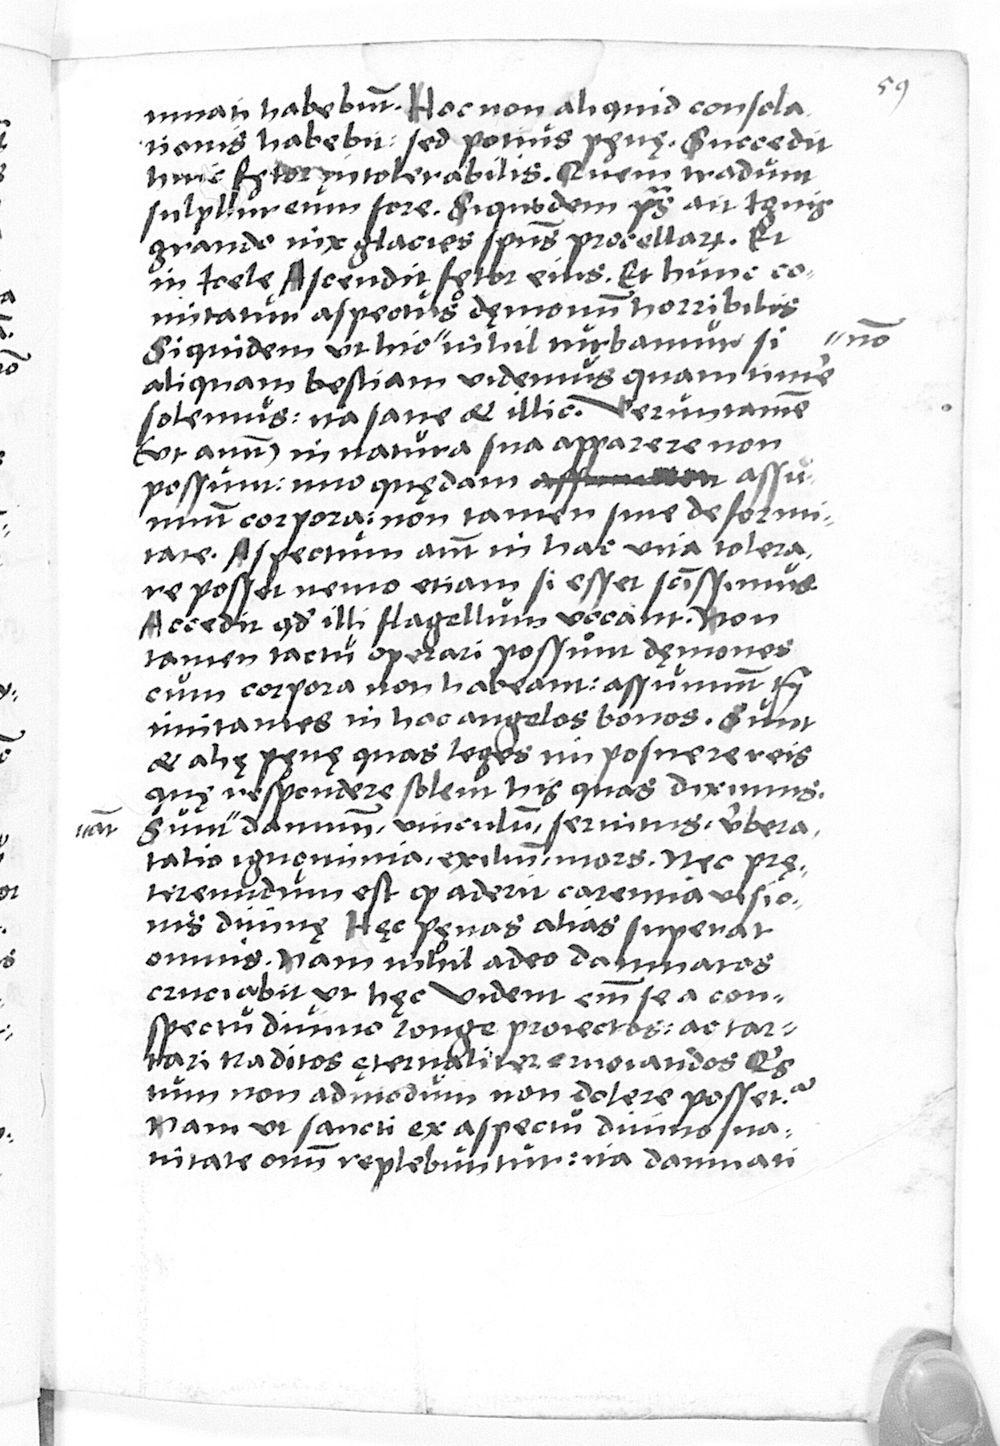 59
mnati habebūt. Hoc non aliquid consola
tionis habebit: sed potius pęnę. Succedit
huic fętor intolerabilis. Quem tradunt
sulphureum fore. Siquidem ꝑs ait Ignis
grando nix glacies spūs procellarꝝ. Et
in Icele Ascendit fętor eius. Et hunc co-
mitatur aspectus dęmonū horribilis
Siquidem ut hic " nihil turbamur si " nō
aliquam bestiam videmus quam timēe
solemus: ita sane & illic. Veruntamē
(ut aiūt) in natura sua apparere non
possunt: imo quędam assu-
mūt corpora: non tamen sine deformi-
tate. Aspectum aūt in hac vita tolera-
re posset nemo etiam si esset scīssimus
Accedit qđ illi flagellum vocant. Non
tamen tactu operari possunt dęmones
cum corpora non habeant: assumunt
imitantes in hoc angelos bonos. Sunt
& alię pęnę quas leges imposuere reis
quę respondere solent his quas diximus.
" aūt Sunt " damnū, vinculū, servitus, v̄bera,
talio ignominia, exiliū: mors. Nec prę-
tereundum est ꝙ aderit carentia visio-
nis divinę Hęc pęnas alias superat
omnis. Nam nihil adeo damnatos
cruciabit ut hęc Vident cūm se a con-
spectu divino longe proiectos: ac tar-
tari traditos ęternaliter cruciandos Q's
tum non admodum non dolere posset?
Nam ut sancti ex aspectu divino sua-
vitate omī replebuntur: ita damnati